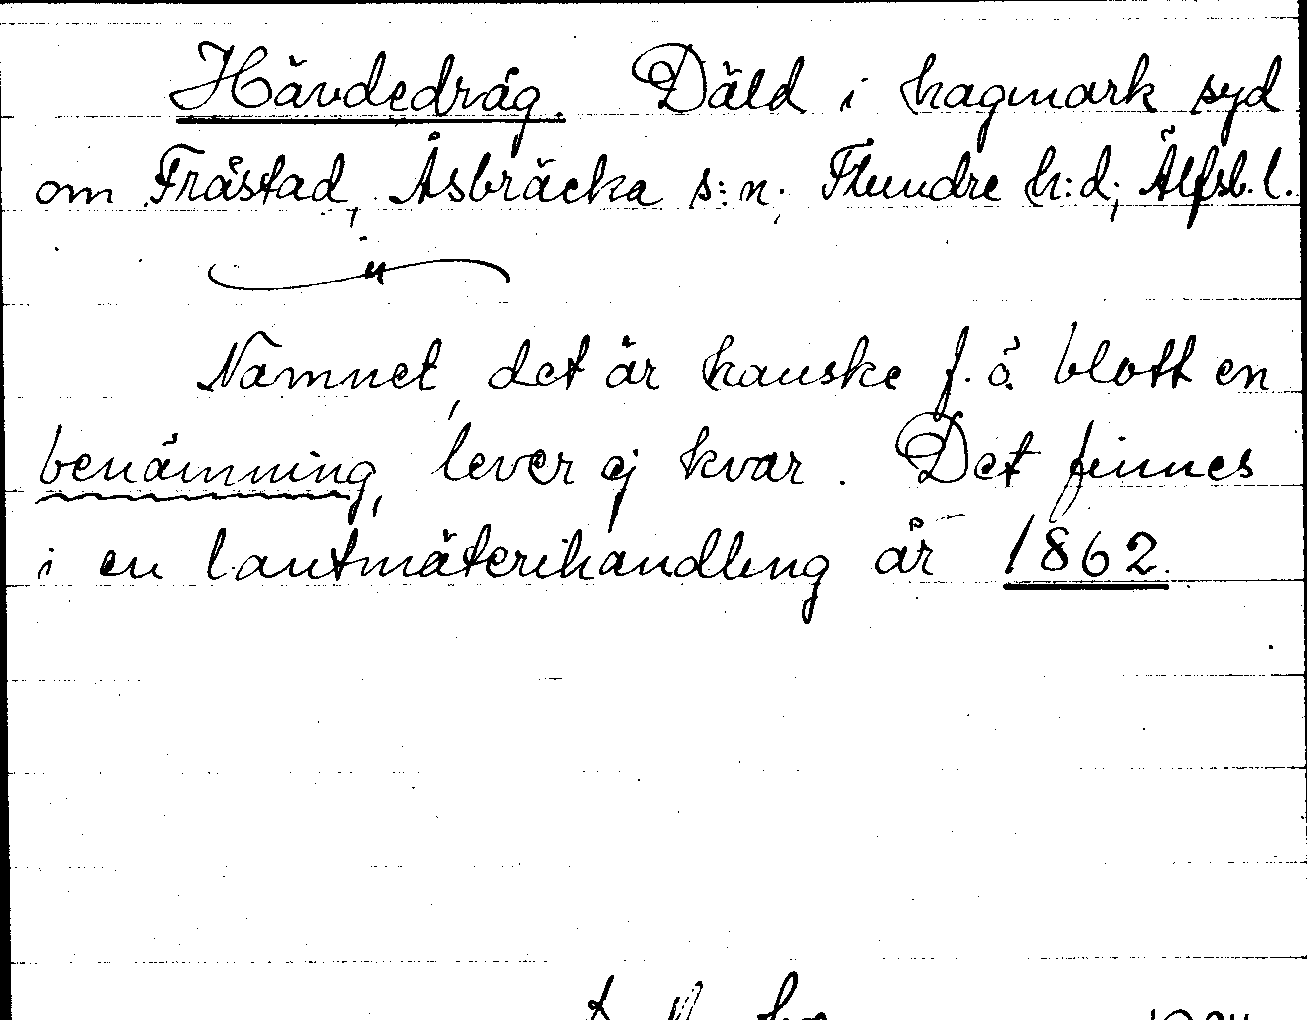 Hävdedråg. Däld i hagmark syd
om Fråstad, Åsbräcka s:n; Flundre h:d; Älfsb. l.
Namnet, det är kanske f. ö. blott en
benämning, lever ej kvar. Det finnes
i en lantmäterihandling år 1862.